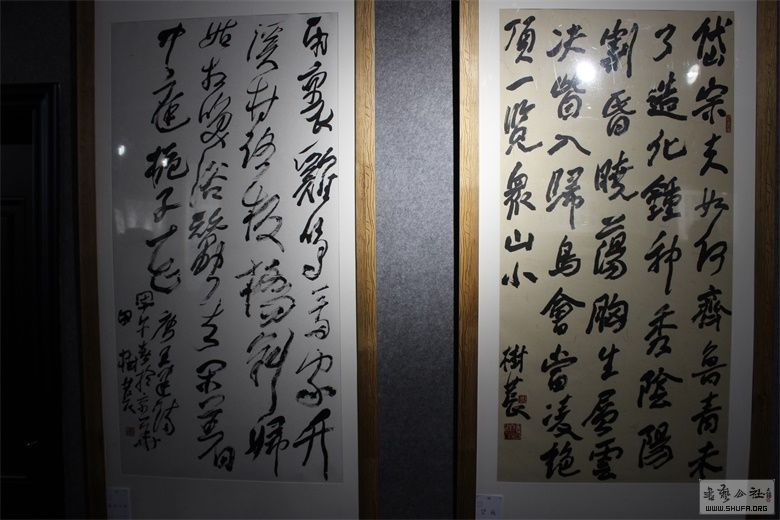 岱宗夫如何齊魯青未
了造化鍾神秀陰陽
割昏曉蕩胸生層雲
決眥入歸鳥會當凌絶
頂一覽衆山小
樹萇
雨裏雞鳴一兩家竹
溪村路板橋斜婦
姑相喚浴蠶去閑著
中庭梔子花
唐王建詩
甲午春於京華
田樹萇
WWW.SHUFA.ORG